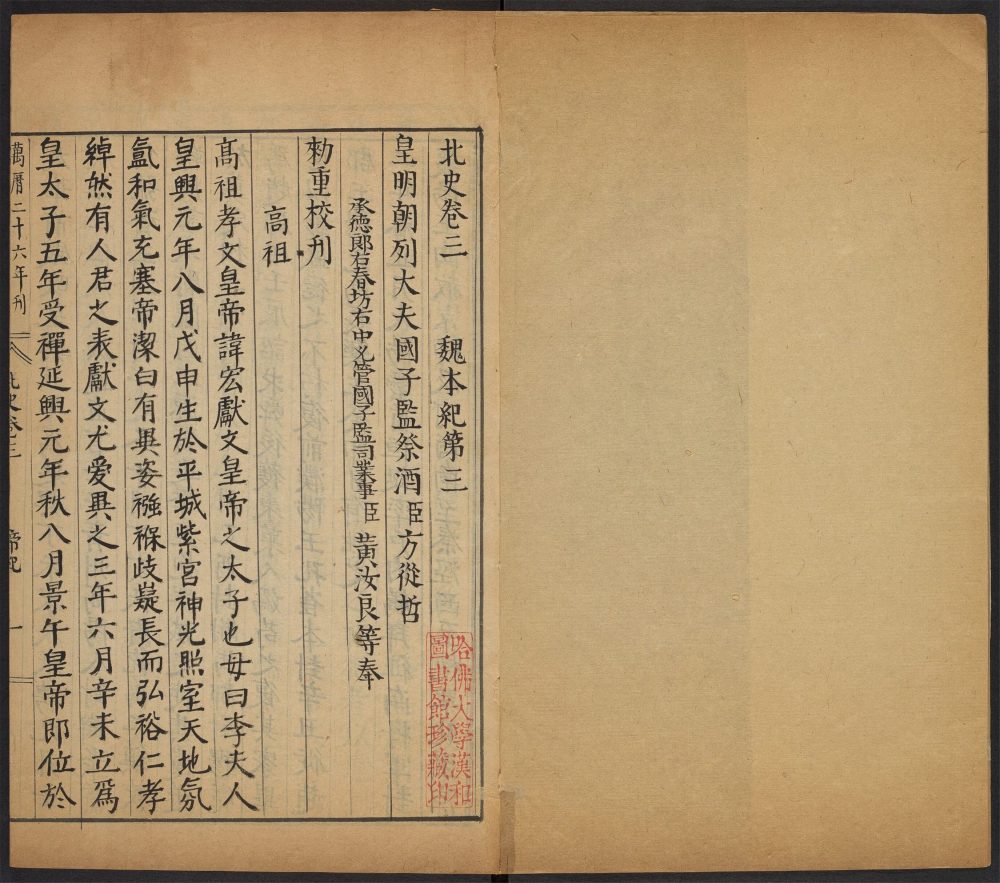 北史卷三　魏本紀第三
皇明朝列大夫國子監祭酒臣方從哲
承德郎右春坊右中允管國子監司業事臣黃汝良等奉
勑重校刋
高祖
髙祖孝文皇帝諱宏獻文皇帝之太子也母曰李夫人
皇興元年八月戊申生於平城紫宮神光照室天地氛
氳和氣充塞帝潔白有異姿襁褓歧嶷長而弘裕仁孝
綽然有人君之表獻文尤愛異之三年六月辛未立爲
皇太子五年受禪延興元年秋八月景午皇帝即位於
萬曆二十六年刋
北史卷三
帝紀
一
哈佛大學漢和
圖書館珍藏印